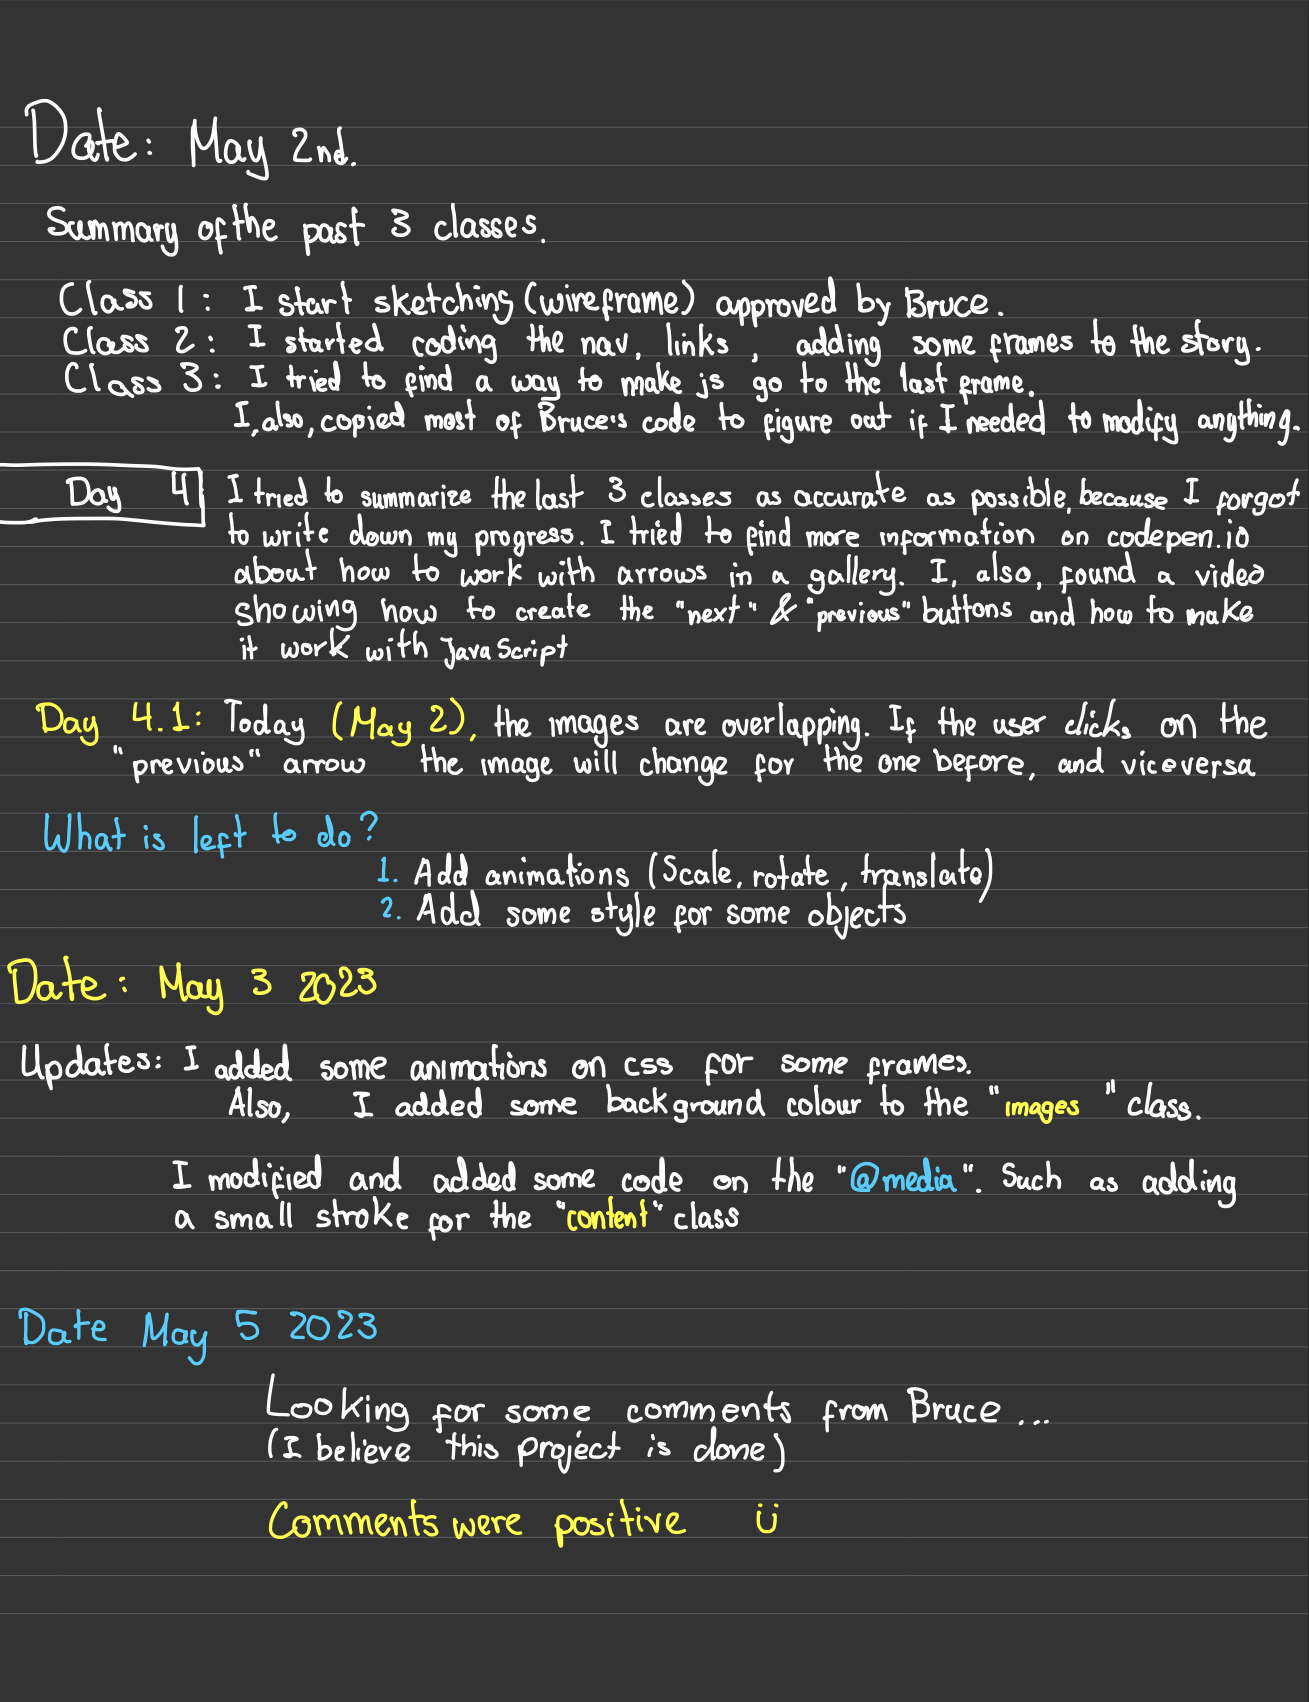 Date: May 2nd.
Summary of the past 3 classes.
Class 1: I start sketching (wireframe) approved by Bruce.
Class 2: I started coding the nav, links, adding some frames to the story.
Class 3: I tried to find a way to make js go to the last frame.
I, also, copied most of Bruce's code to figure out if I needed to modify anything.
Day 4 I tried to summarize the last 3 classes as accurate as possible, because I forgot
to write down my progress. I tried to find more information on codepen.io
about how to work with arrows in a gallery. I, also, found a video
showing how to create the "next" & "previous" buttons and how to make
it work with JavaScript
Day 4.1: Today (May 2), the images are overlapping. If the user clicks on the
"previous" arrow the image will change for the one before, and viceversa
What is left to do?
1. Add animations (Scale, rotate, translate)
2. Add some style for some objects
Date: May 3 2023
Updates: I added some animations on css for some frames.
Also, I added some background colour to the "images" class.
I modified and added some code on the "@media". Such as adding
a small stroke for the "content" class
Date May 5 2023
Looking for some comments from Bruce...
(I believe this project is done)
Comments were positive ü